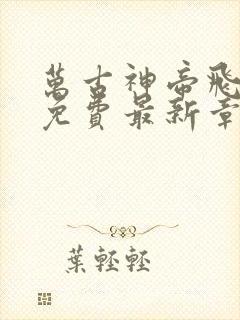 萬古神帝飛
免費最新章
葉輕輕